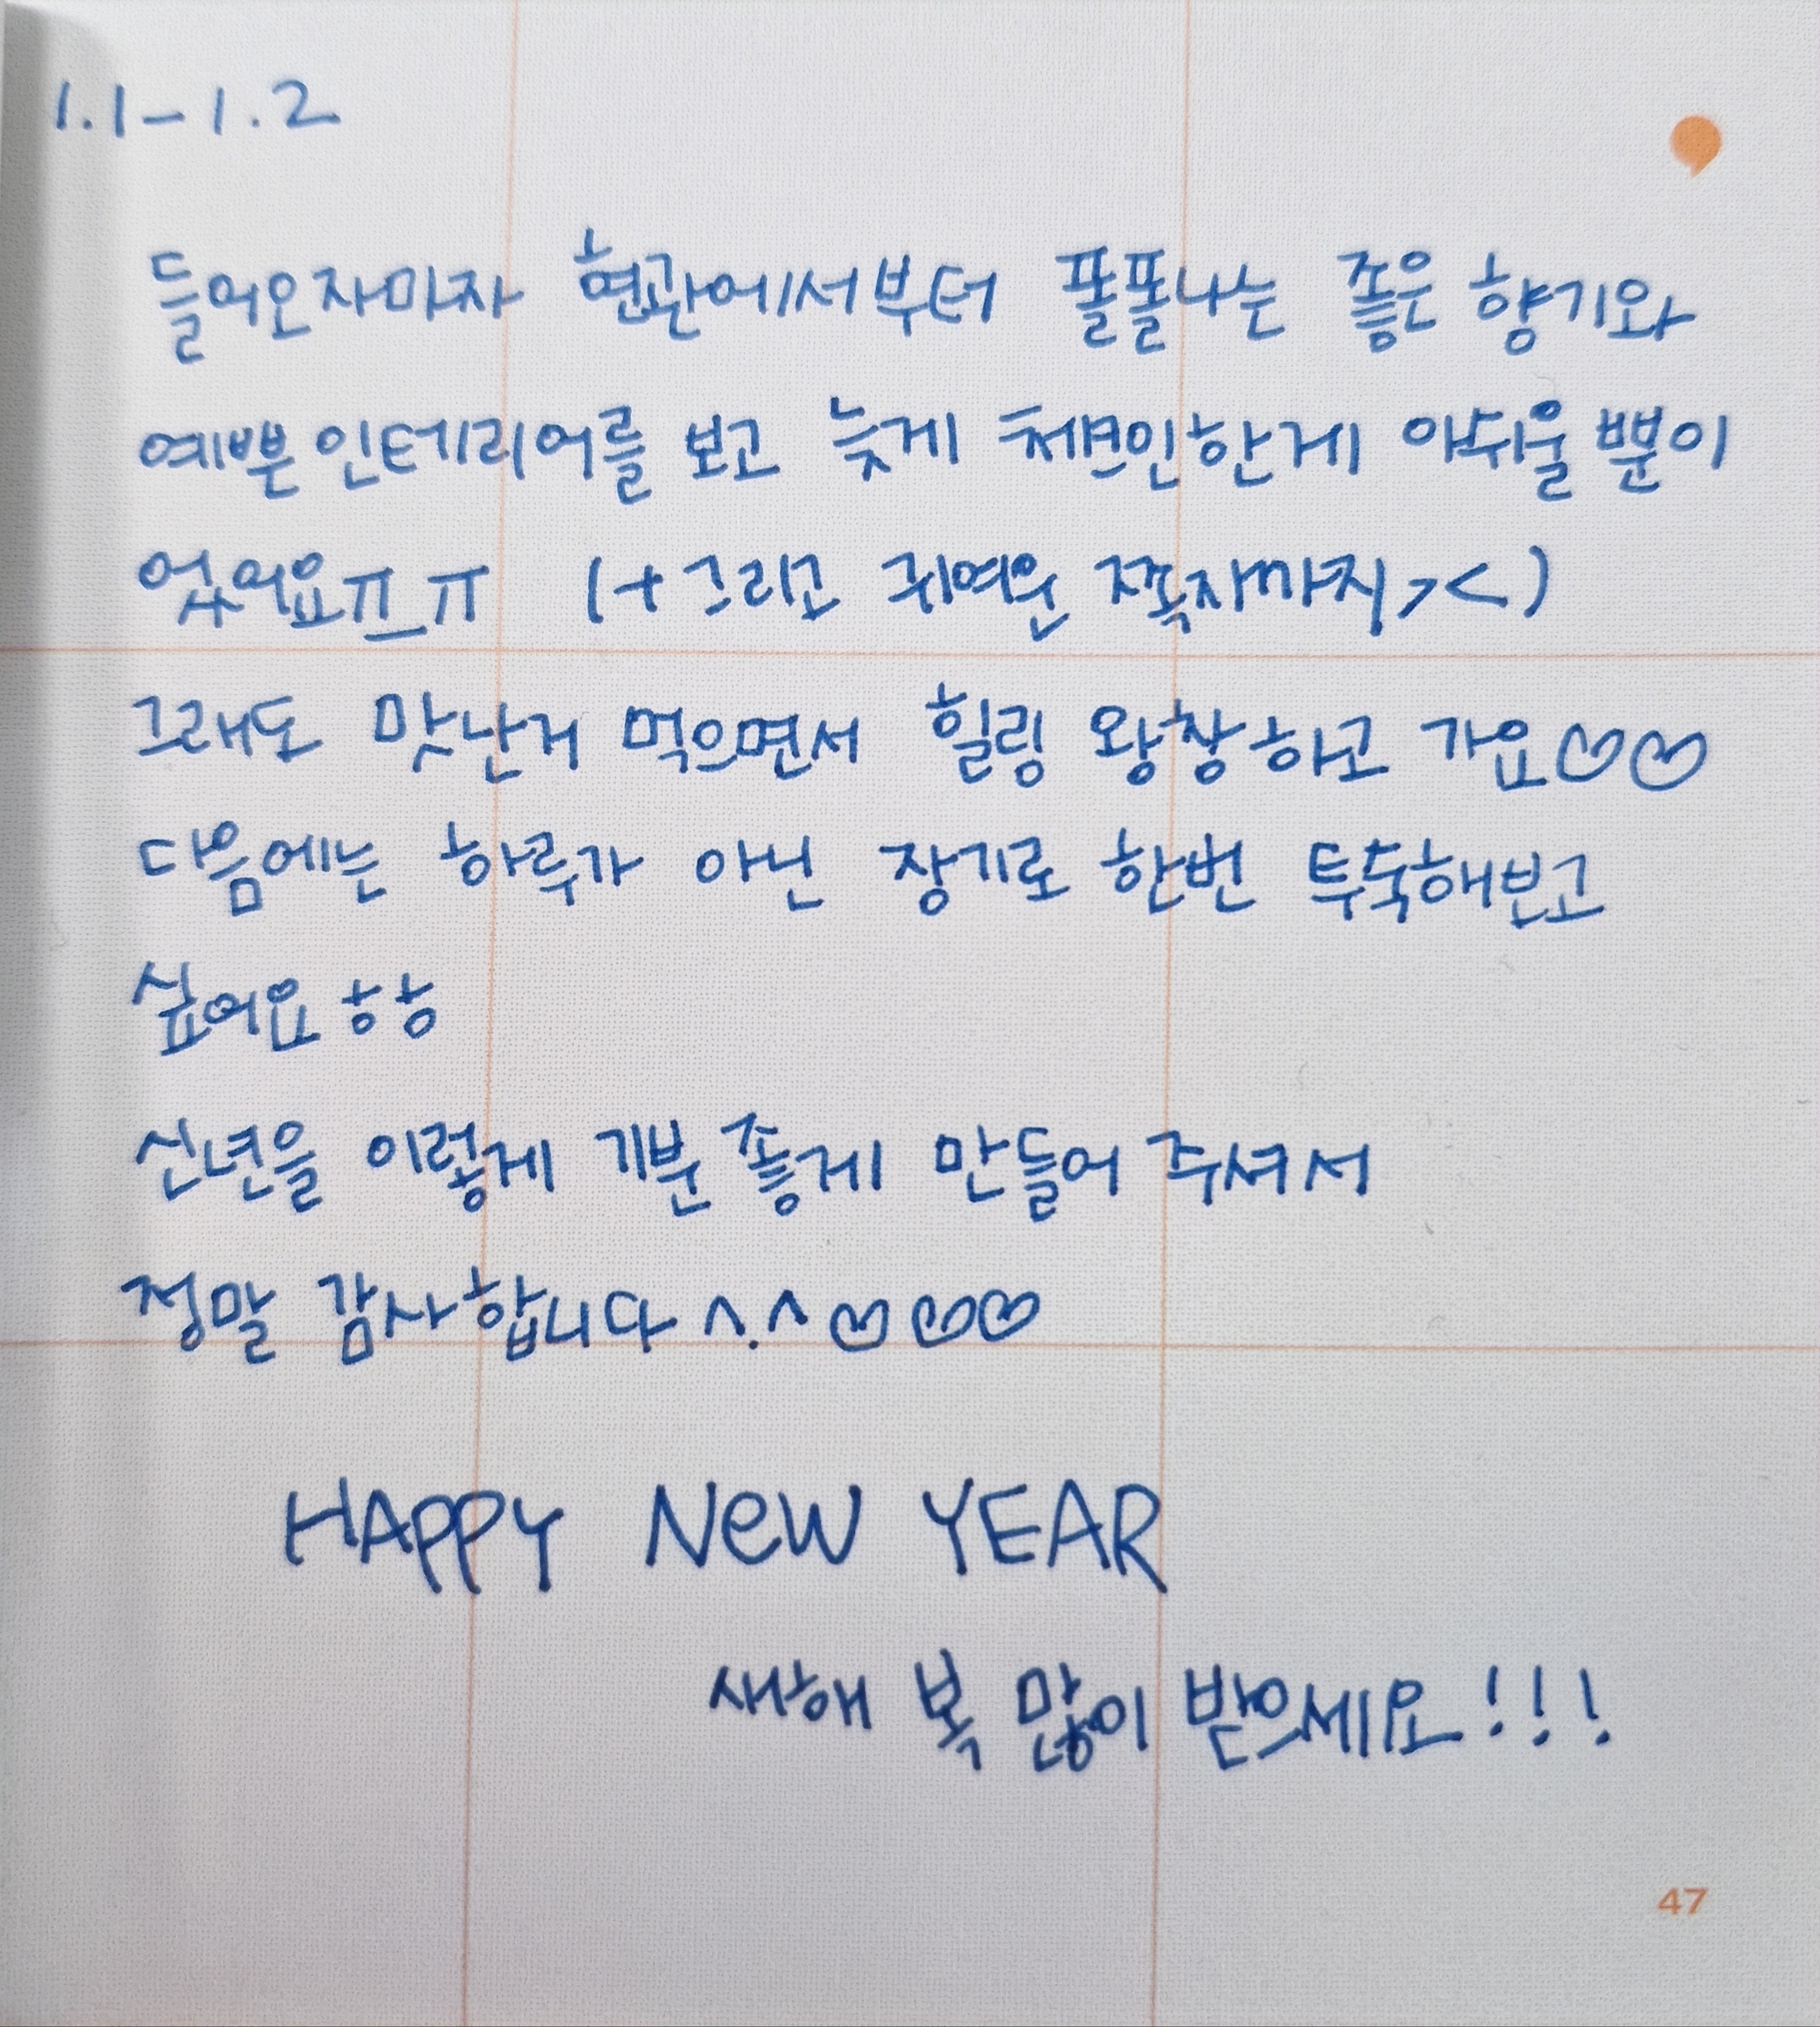 1.1-1.2
들어오자마자 현관에서부터 폴폴나는 좋은 향기와
예쁜 인테리어를 보고 늦게 체크인한게 아쉬울 뿐이
었어요ㅠ_ㅠ (+ 그리고 귀여운 쪽지까지><)
그래도 맛난거 먹으면서 힐링 왕창하고 가요♡♡
다음에는 하루가 아닌 장기로 한번 투숙해보고
싶어요 ㅎㅎ
신년을 이렇게 기분 좋게 만들어 주셔서
정말 감사합니다 ^.^♡♡♡
HAPPY NeW YEAR
새해 복 많이 받으세요!!!
47